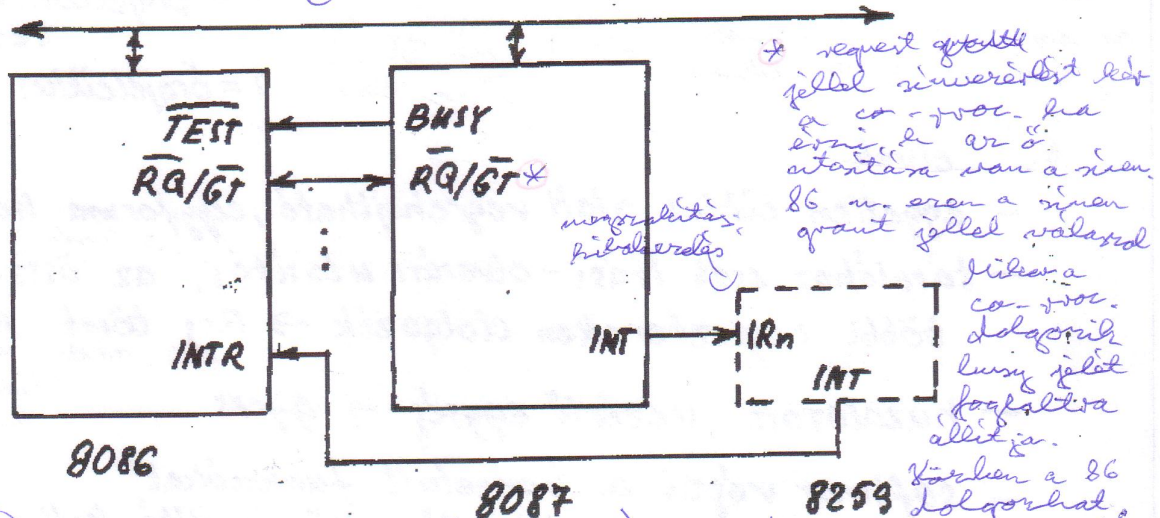 TEST
RQ/GT
INTR
8086
BUSY
RQ/GT *
INT
8087
IRn
INT
8259
megszakítás
* request
jellel sínvezérlést kér
a co-proc. ha
érzi, h az ő
utasítása van a sínen.
86 u. ezen a sínen
grant jellel válaszol
Mikor a
co-proc.
dolgozik
busy jelét
foglaltra
állítja.
Közben a 86
dolgozhat.